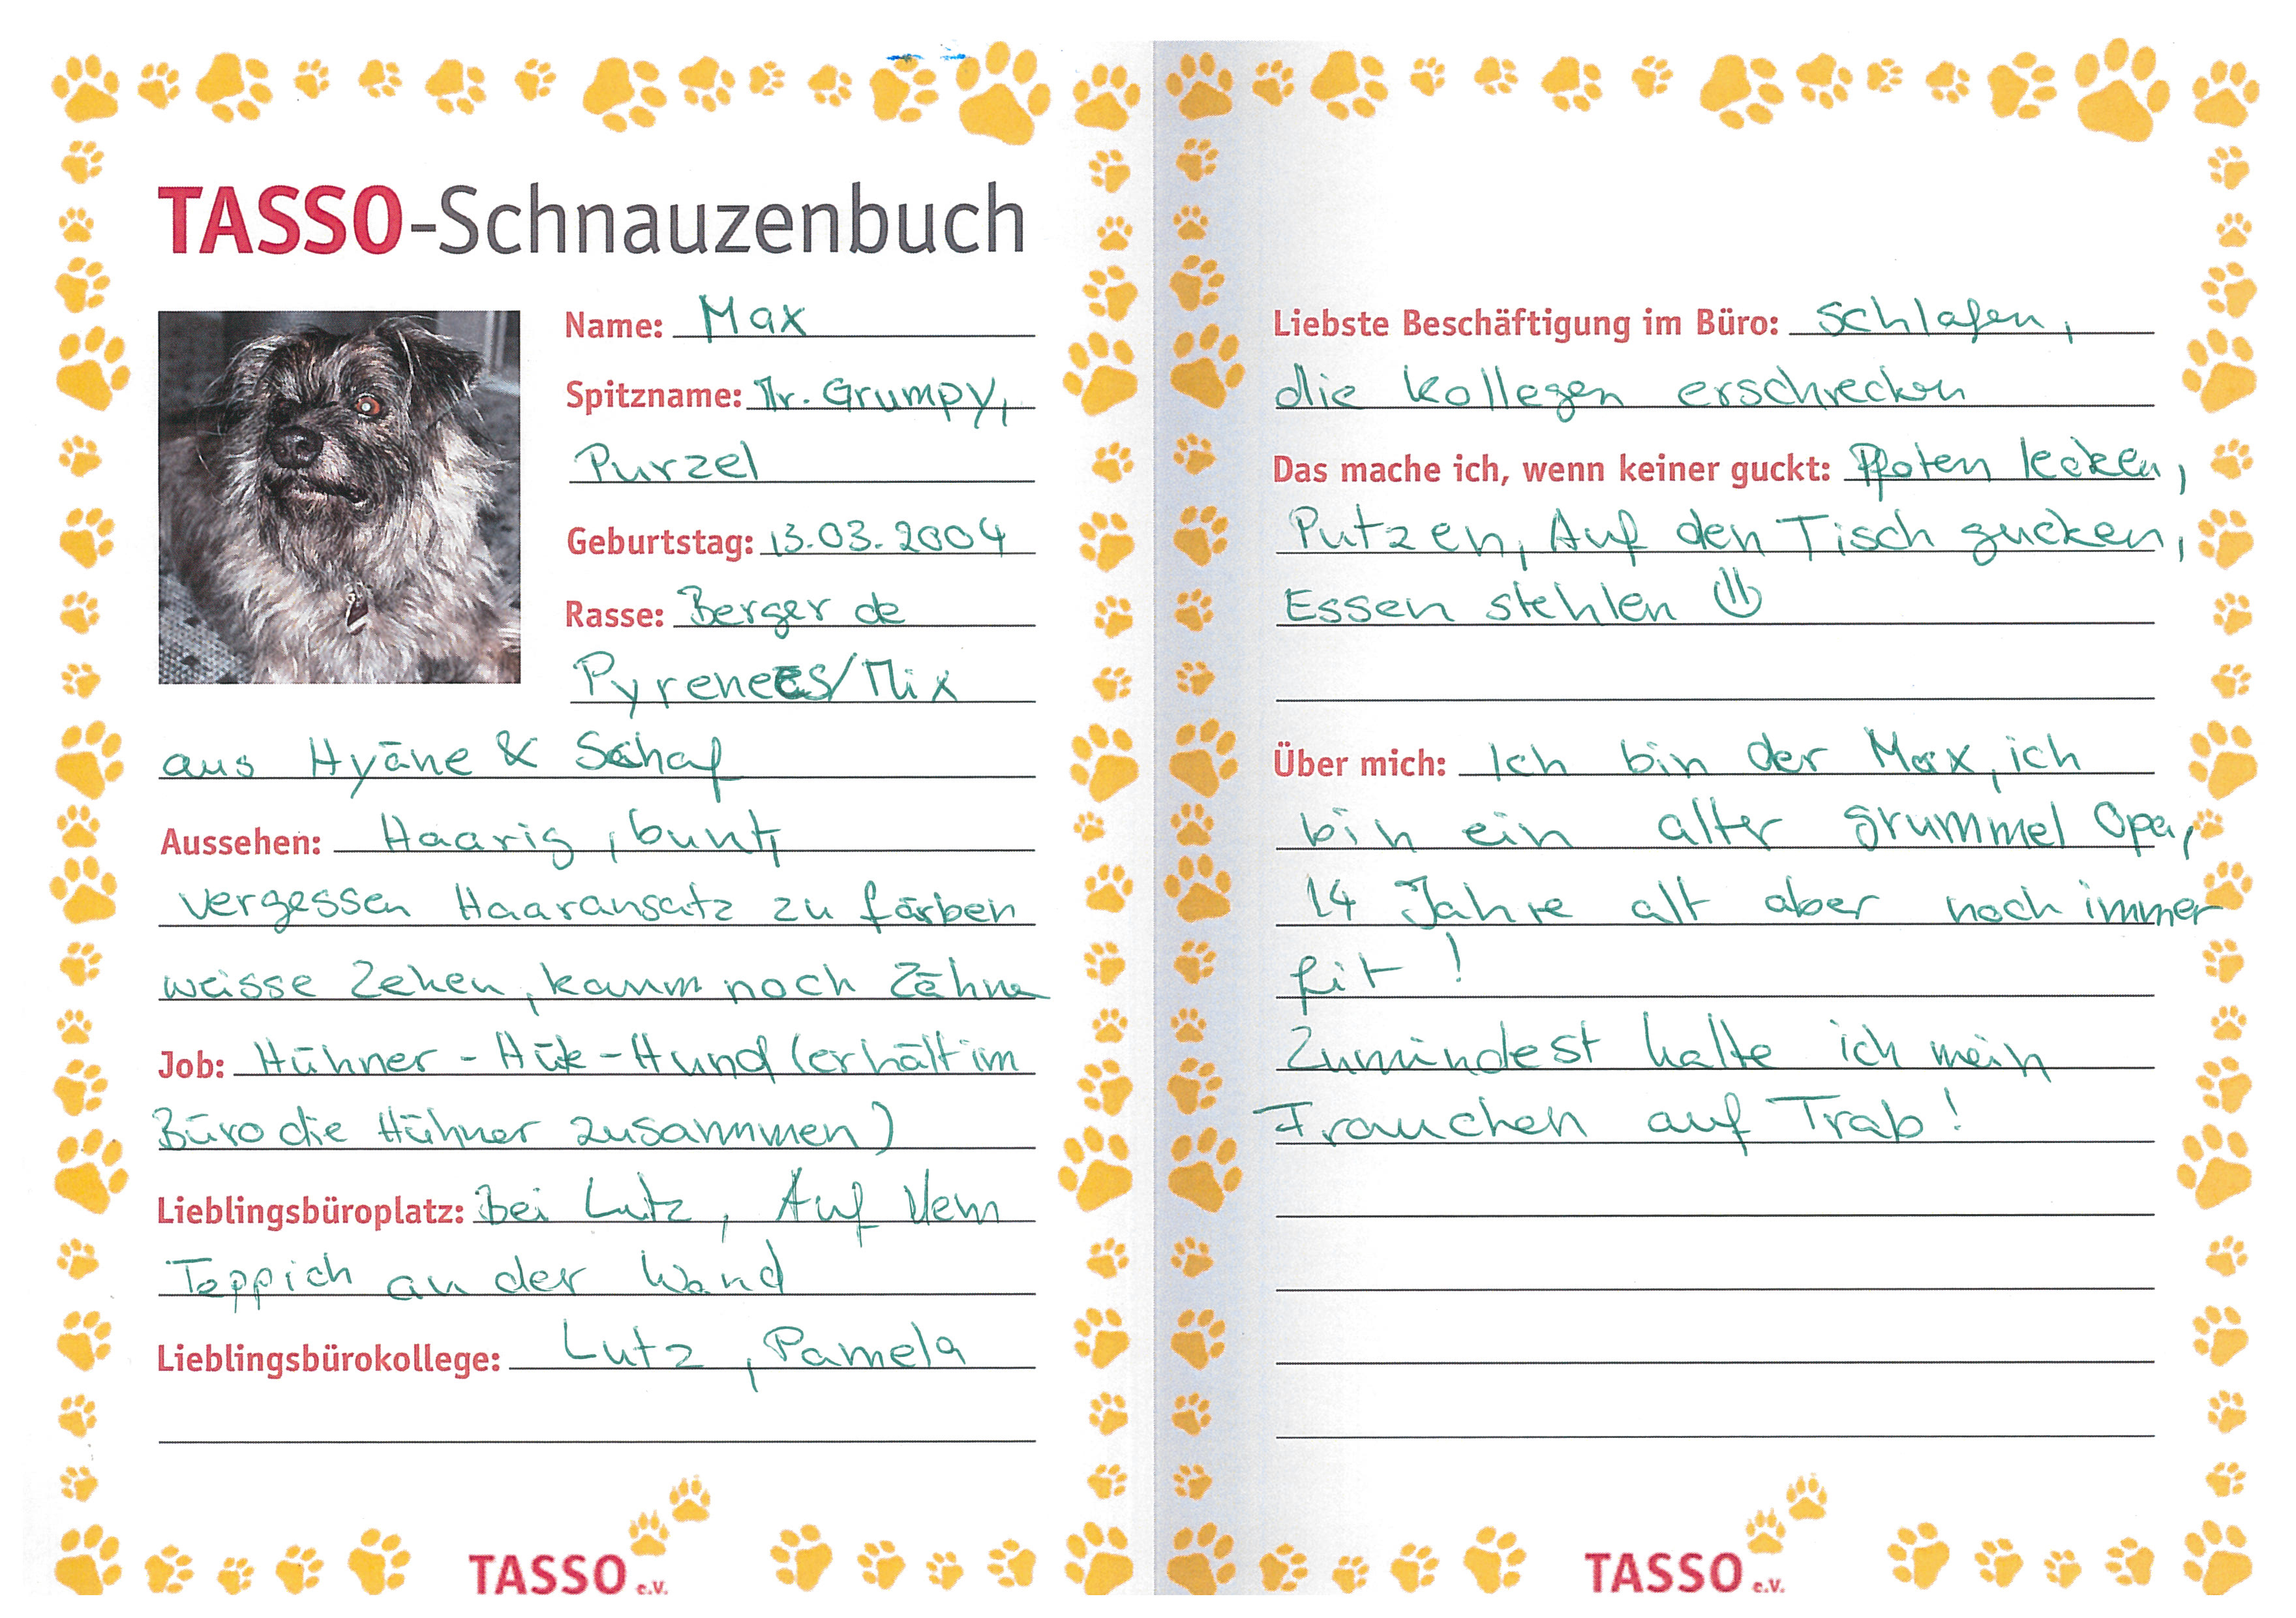 TASSO-Schnauzenbuch
Name: Max
Spitzname: Mr. Grumpy,
Purzel
Geburtstag: 13.03.2004
Rasse: Berger de
Pyrenees/Mix
aus Hyäne & Schaf
Aussehen: Haarig, bunt,
vergessen Haaransatz zu färben
weisse Zehen, kaum noch Zähne
Job: Hühner-Hüte-Hund (erhält im
Büro die Hühner zusammen)
Lieblingsbüroplatz: Bei Lutz, Auf dem
Teppich an der Wand
Lieblingsbürokollege: Lutz, Pamela
TASSO e.V.
Liebste Beschäftigung im Büro: Schlafen,
die Kollegen erschrecken
Das mache ich, wenn keiner guckt: Pfoten lecken,
Putzen, Auf den Tisch gucken,
Essen stehlen
Über mich: Ich bin der Max, ich
bin ein alter grummel Opa,
14 Jahre alt aber noch immer
fit!
Zumindest halte ich mein
Frauchen auf Trab!
TASSO e.V.